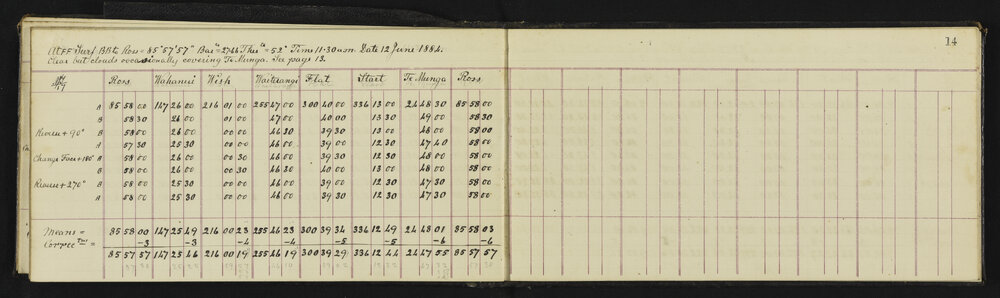 14
At FF Turf BB to Ross = 85°57'57" Bar = 27.44 Ther = 52° Time 11.30 a.m. Date 12 June 1884.
Clear but clouds occasionally covering Te Munga. See page 13.
Ross Wahanui Wish Waiterangi Flat Start Te Munga Ross
A 85 58 00 147 26 00 216 01 00 255 47 00 300 40 00 336 13 00 24 48 30 85 58 00
B 58 30 26 00 01 00 47 00 40 00 13 30 49 00 58 30
Reverse + 90° B 58 00 26 00 00 00 46 30 39 30 13 00 48 00 58 00
A 57 30 25 30 00 00 46 00 39 00 12 30 47 40 58 00
Change Face + 180° A 58 00 26 00 00 30 46 00 39 30 12 30 48 00 58 00
B 58 00 26 00 00 30 46 30 40 00 13 00 48 00 58 00
Reverse + 270° B 58 00 25 30 00 00 46 00 39 00 12 30 47 30 58 00
A 58 00 25 30 00 00 46 00 39 30 12 30 47 30 58 00
Means = 85 58 00 147 25 49 216 00 23 255 46 23 300 39 34 336 12 49 24 48 01 85 58 03
Correc = -3 -3 -4 -4 -5 -5 -6 -6
85 57 57 147 25 46 216 00 19 255 46 19 300 39 29 336 12 44 24 47 55 85 57 57